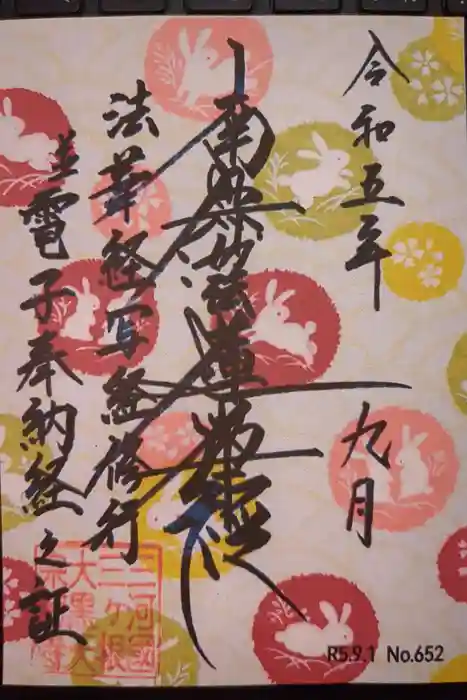 令和五年 九月
南無妙法蓮華経
法華経写経修行
並電子奉納経之証
三河國
三ヶ根
大黒天
宗寺
R5.9.1 No.652